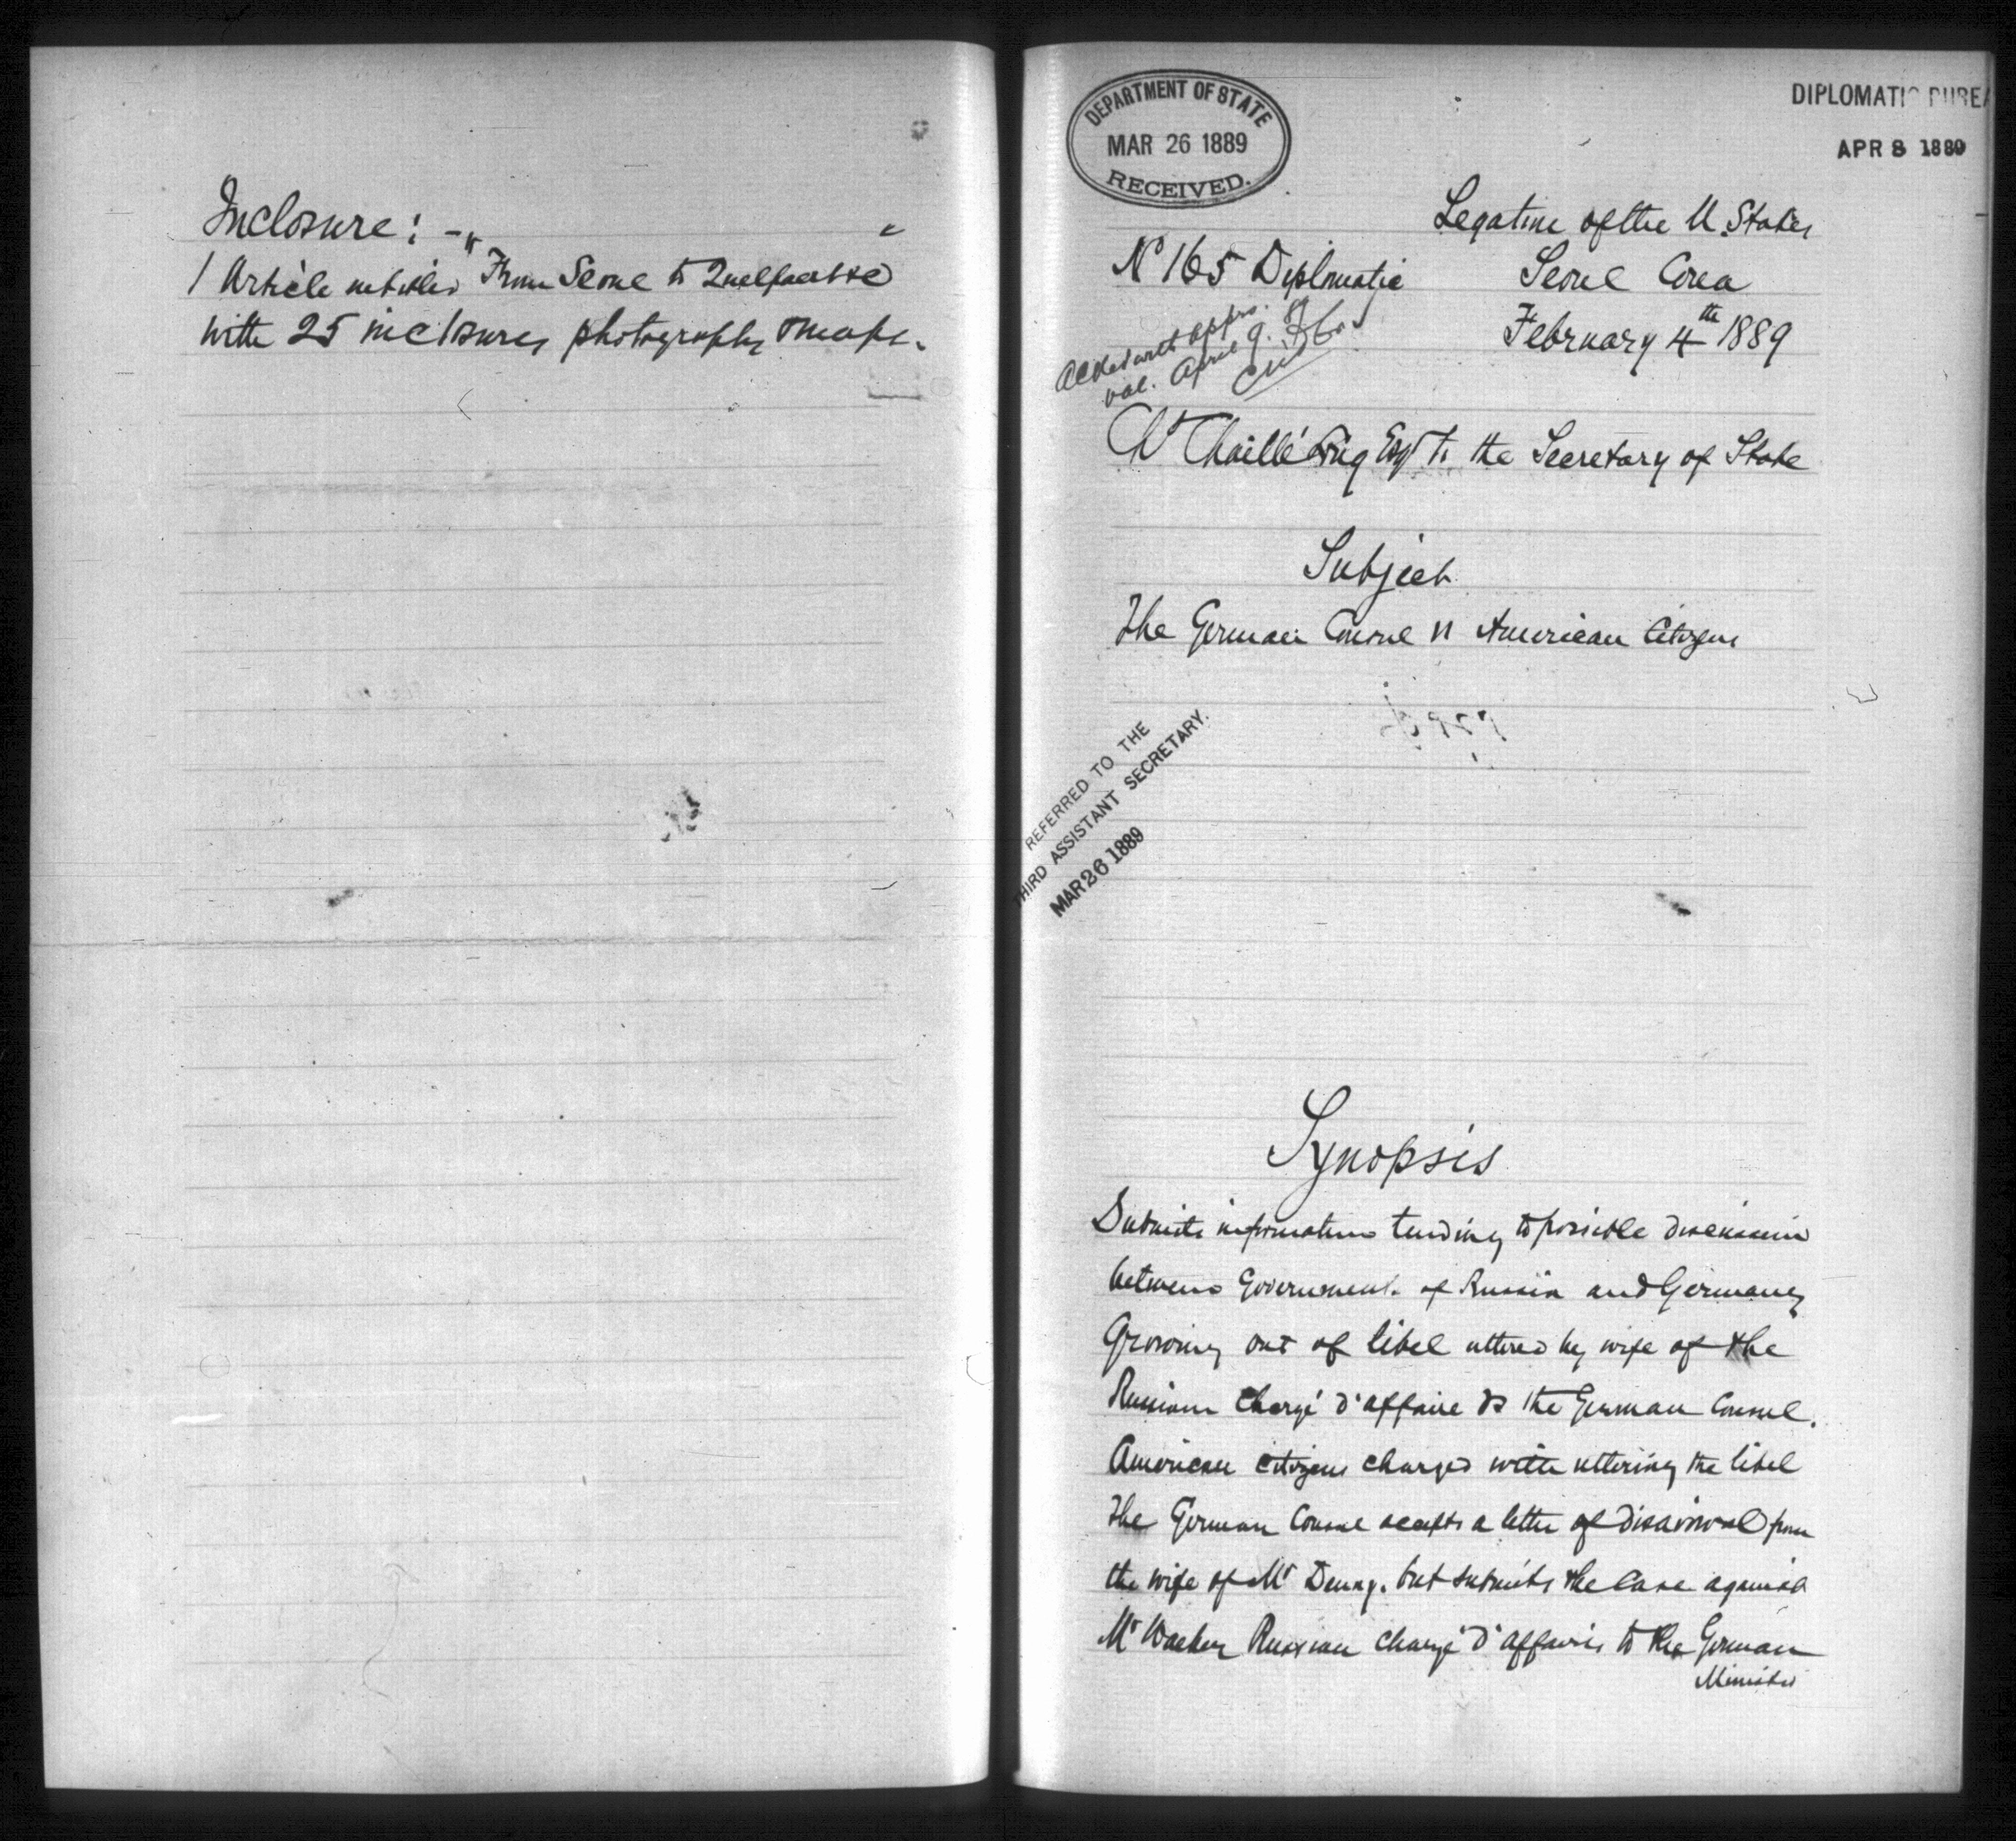 Inclosure: -
1 Article entitled "From Seoul to Quelpaert &c"
with 25 inclosures, photographs & maps.
DEPARTMENT OF STATE
MAR 26 1889
RECEIVED.
DIPLOMATIC BUREA
APR 8 1889
Legation of the U. States
No 165 Diplomatic
Seoul Corea
February 4th 1889
Ackd with appro-
val. April 9.
Ch Chaillé Long Esqr to the Secretary of State
Subject
The German Consul vs American Citizens
REFERRED TO THE
THIRD ASSISTANT SECRETARY.
MAR 26 1889
Synopsis
Submits information tending to possible discussion
between Governments of Russia and Germany
Growing out of libel uttered by wife of the
Russian Chargé d'affaire vs the German Consul.
American citizens charged with uttering the libel
The German Consul accepts a letter of disavowal from
the wife of Mr Denny. but submits the Case against
Mr Waeber Russian Chargé d'affaires to the German
Minister